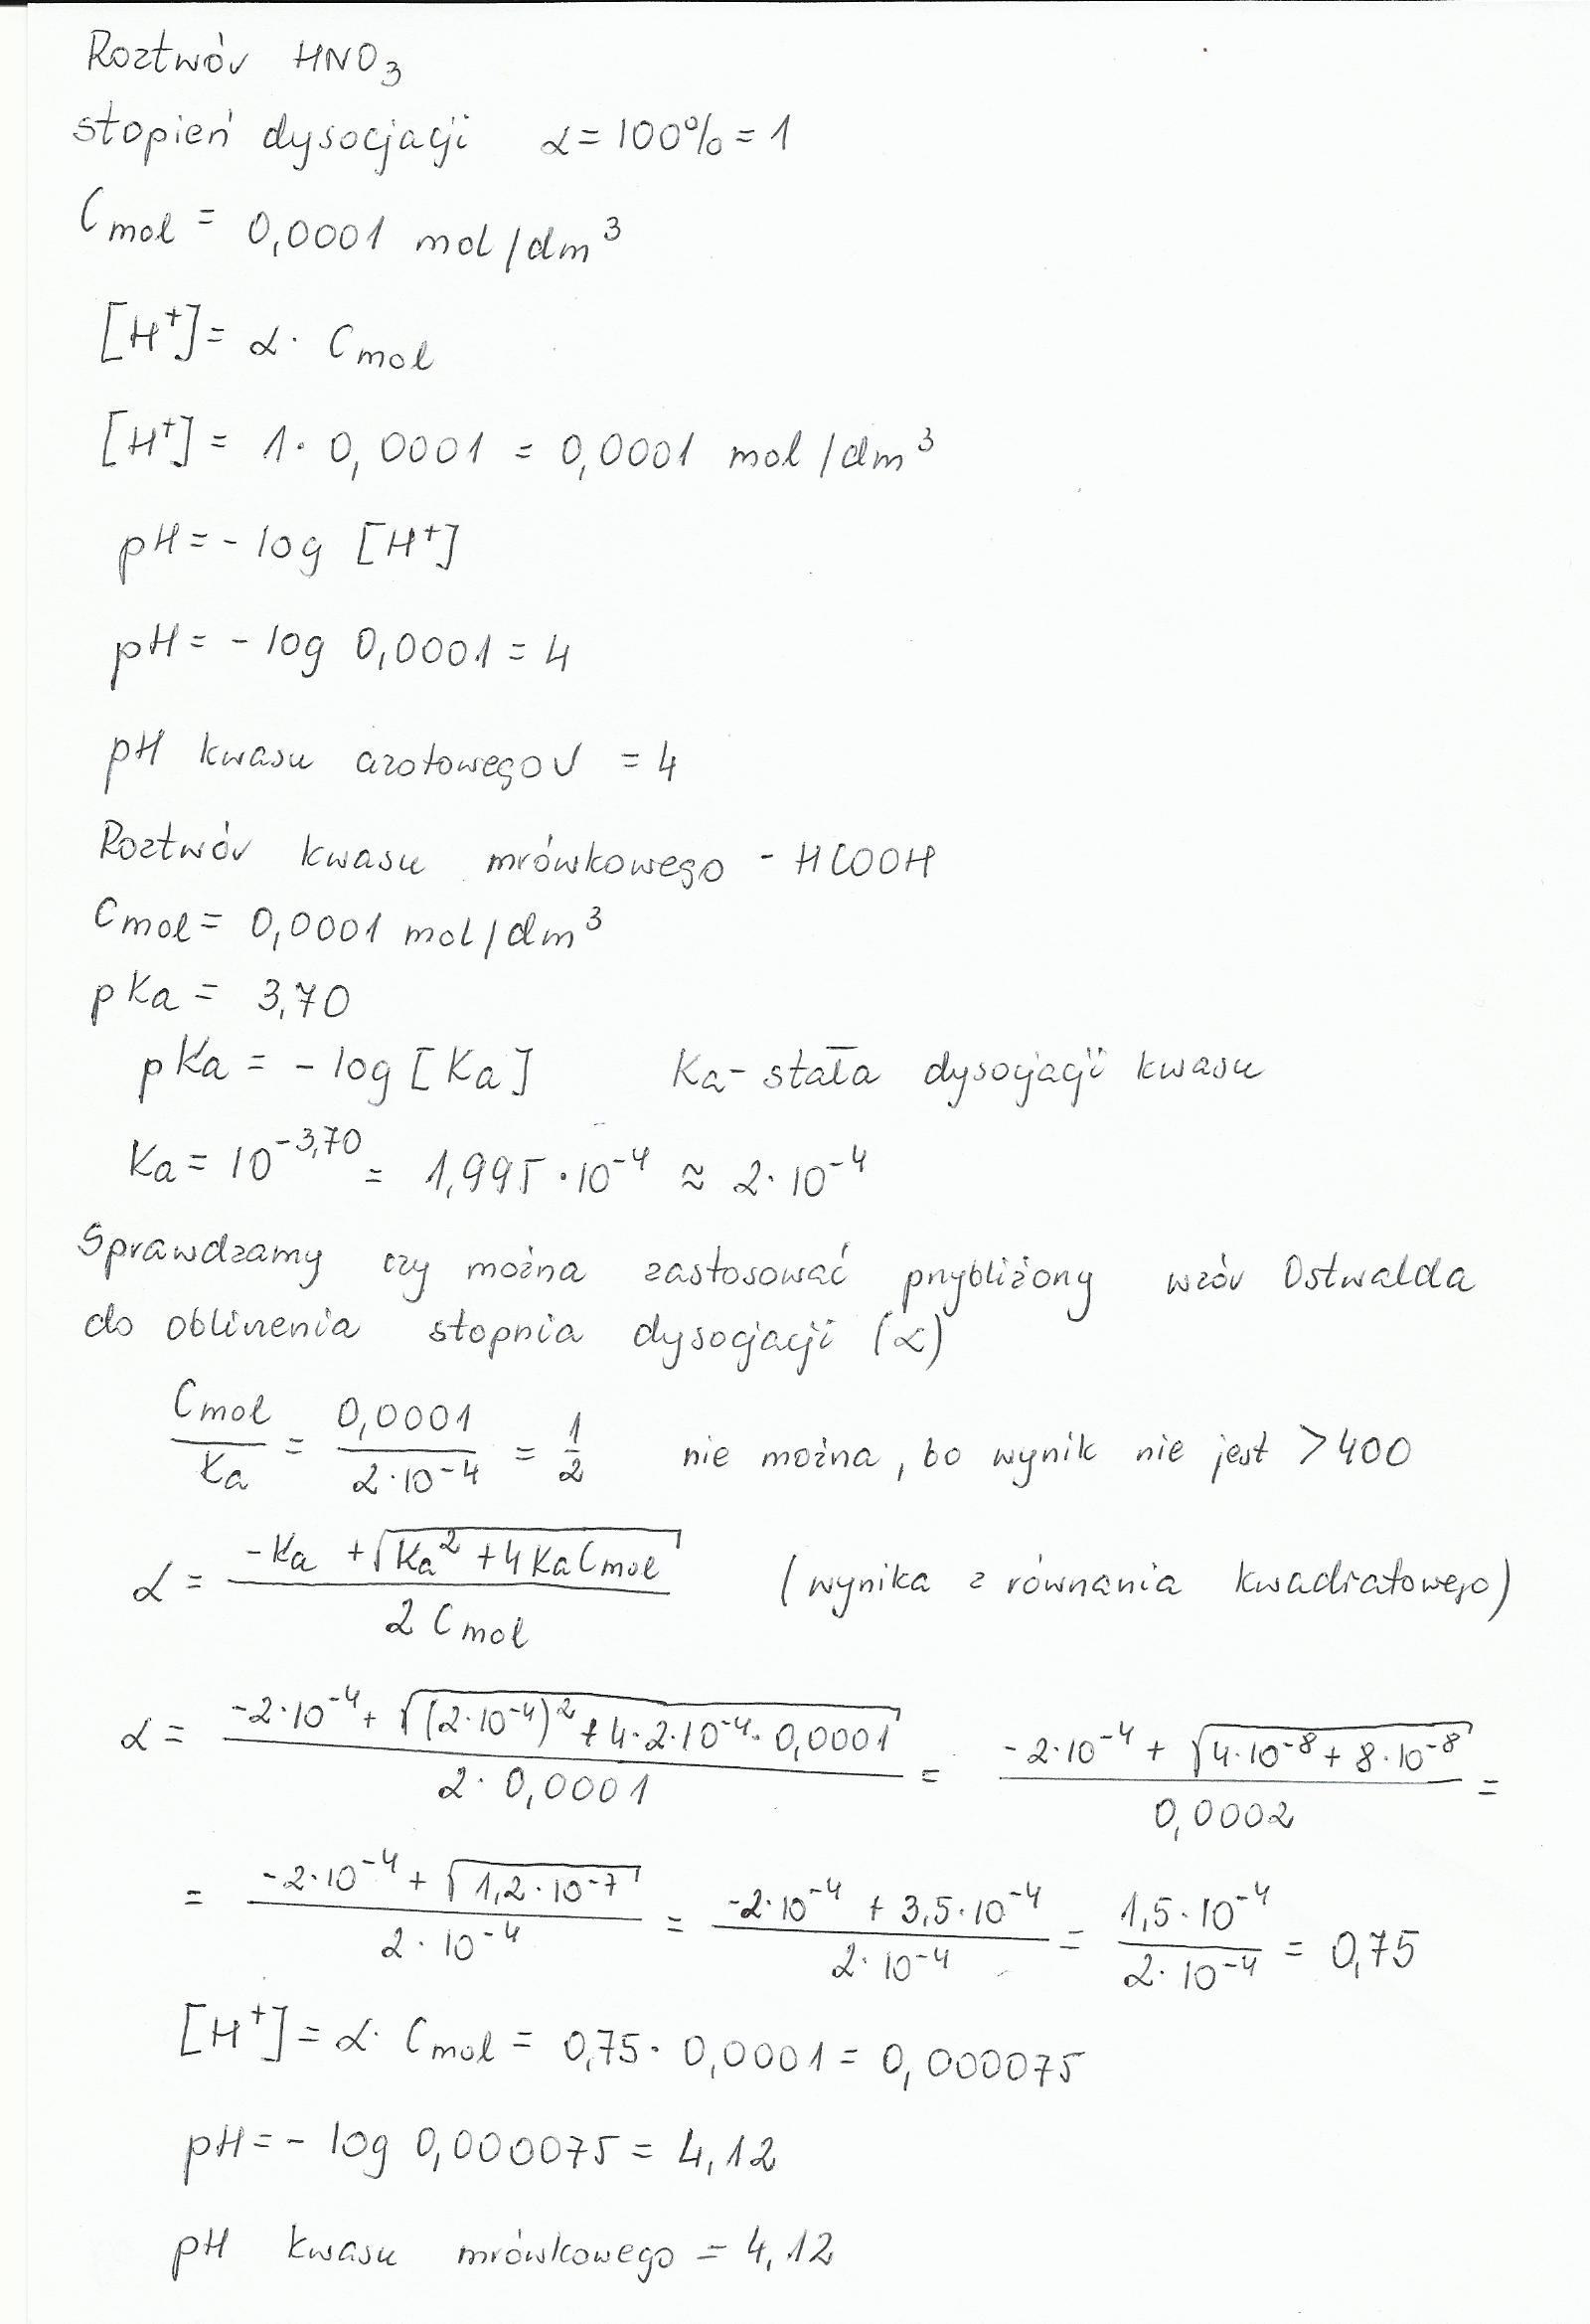 Roztwór HNO₃
stopień dysocjacji α = 100% = 1
Cmol = 0,0001 mol/dm³
[H⁺] = α · Cmol
[H⁺] = 1 · 0,0001 = 0,0001 mol/dm³
pH = - log [H⁺]
pH = - log 0,0001 = 4
pH kwasu azotowego V = 4
Roztwór kwasu mrówkowego - HCOOH
Cmol = 0,0001 mol/dm³
pKa = 3,70
pKa = - log [Ka] Ka - stała dysocjacji kwasu
Ka = 10^-3,70 = 1,995 · 10⁻⁴ ≈ 2 · 10⁻⁴
Sprawdzamy czy można zastosować przybliżony wzór Ostwalda
do obliczenia stopnia dysocjacji (α)
Cmol/Ka = 0,0001/(2·10⁻⁴) = 1/2 nie można, bo wynik nie jest > 400
α = (-Ka + √(Ka² + 4KaCmol))/(2 Cmol) (wynika z równania kwadratowego)
α = (-2·10⁻⁴ + √((2·10⁻⁴)² + 4·2·10⁻⁴·0,0001))/(2·0,0001) = (-2·10⁻⁴ + √(4·10⁻⁸ + 8·10⁻⁸))/0,0002 =
= (-2·10⁻⁴ + √(1,2·10⁻⁷))/(2·10⁻⁴) = (-2·10⁻⁴ + 3,5·10⁻⁴)/(2·10⁻⁴) = (1,5·10⁻⁴)/(2·10⁻⁴) = 0,75
[H⁺] = α · Cmol = 0,75 · 0,0001 = 0,000075
pH = - log 0,000075 = 4,12
pH kwasu mrówkowego = 4,12